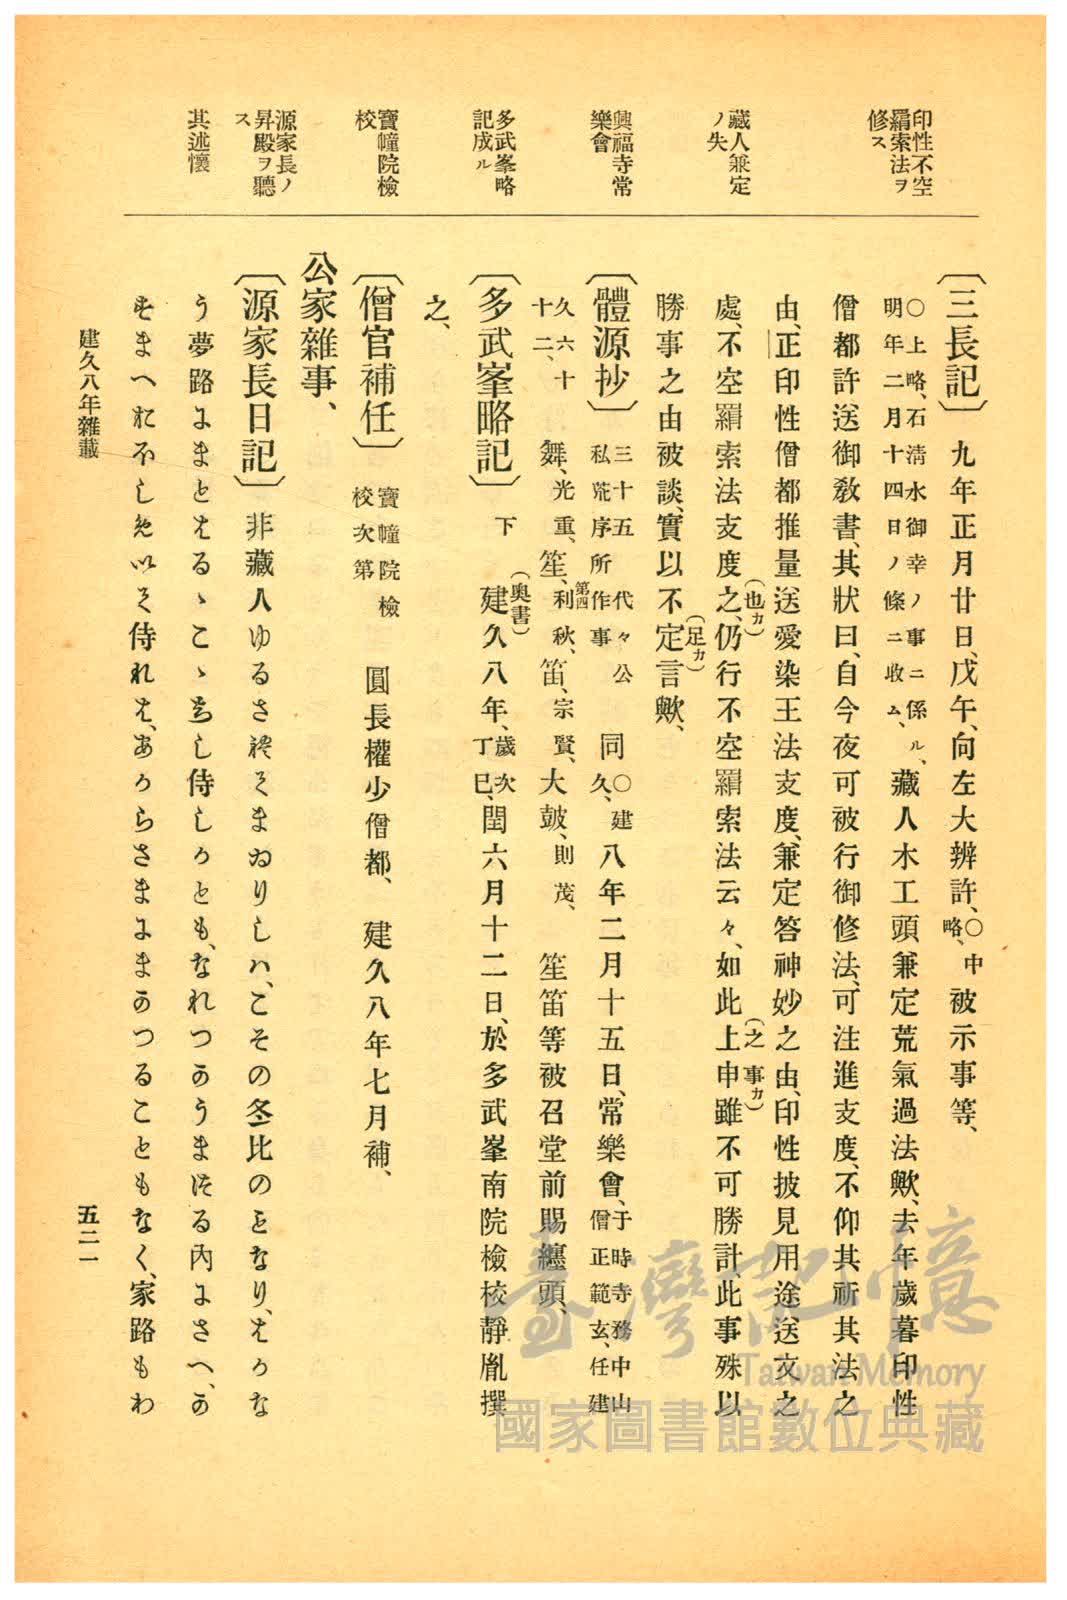 印性不空
羂索法ヲ
修ス
藏人兼定
ノ失
興福寺常
樂會
多武峯略
記成ル
寶幢院檢
校
源家長ノ
昇殿ヲ聽
ス
其述懷
〔三長記〕 九年正月廿日、戊午、向左大辨許、○中略、被示事等、
○上略、石清水御幸ノ事ニ係ル、明年二月十四日ノ條ニ收ム、藏人木工頭兼定荒氣過法歟、去年歲暮印性
僧都許送御敎書、其狀曰、自今夜可被行御修法、可注進支度、不仰其祈其法之
由、正印性僧都推量送愛染王法支度、兼定答神妙之由、印性披見用途送文之
處、不空羂索法支度之(也カ)、仍行不空羂索法云々、如此上申(之事カ)雖不可勝計、此事殊以
勝事之由被談、實以不定(足カ)言歟、
〔體源抄〕 三十五代々公私荒序所作事第四 同○建久、八年二月十五日、常樂會、于時寺務中山僧正範玄、任建
久六十十二、 舞、光重、笙、利秋、笛、宗賢、大鼓、則茂、 笙笛等被召堂前賜纏頭、
〔多武峯略記〕 下 (奧書)建久八年、歲次丁巳、閏六月十二日、於多武峯南院檢校靜胤撰
之、
〔僧官補任〕 寶幢院檢校次第 圓長權少僧都、 建久八年七月補、
公家雜事、
〔源家長日記〕 非藏人ゆるされてまゐりしハ、こその冬比のことなり、はかな
う夢路にまとはるゝこゝちし侍しかとも、なれつかうまつる內にさへ、か
すまへおホしめいて侍れは、あからさまにまかつることもなく、家路もわ
建久八年雜載
五二一
臺灣記憶
Taiwan Memory
國家圖書館數位典藏